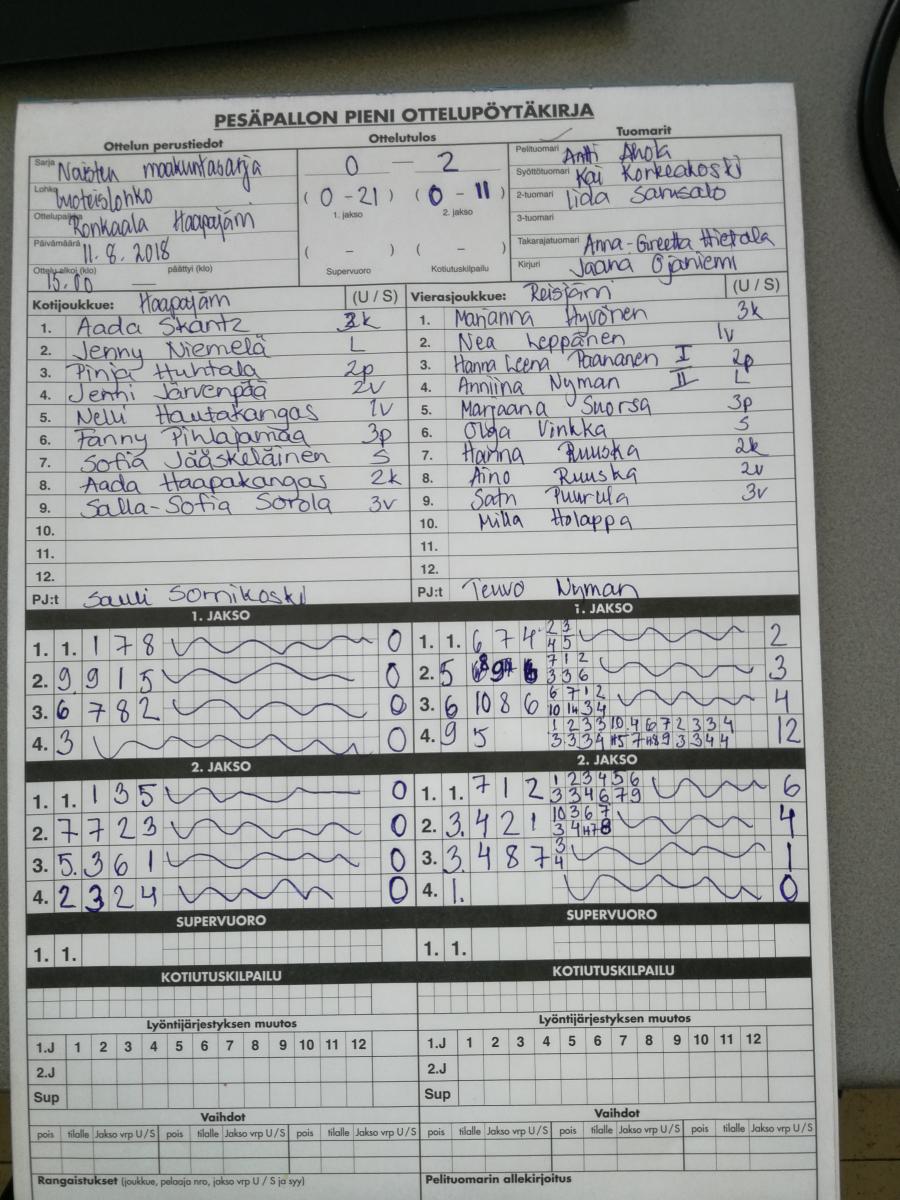 PESÄPALLON PIENI OTTELUPÖYTÄKIRJA
Ottelun perustiedot Ottelutulos Tuomarit
Sarja Naisten maakuntasarja
Lohko Luoteislohko
Ottelupaikka Ronkaala Haapajärvi
Päivämäärä 11.8.2018
Ottelu alkoi (klo) päättyi (klo)
15.00 —
0 — 2
( 0 - 21 ) ( 0 - 11 )
1. jakso 2. jakso
( - ) ( - )
Supervuoro Kotiutuskilpailu
Pelituomari Antti Ahola
Syöttötuomari Kai Korkeakoski
2-tuomari Iida
3-tuomari
Takarajatuomari Anna-Greetta Hietala
Kirjuri Jaana Ojaniemi
Kotijoukkue: Haapajärvi (U / S)
1. Aada Skantz
2. Jenny Niemelä L
3. Pinja Huhtala 2p
4. Jenni Järvenpää 2v
5. Nelli Hautakangas 1v
6. Fanny Pihlajamaa 3p
7. Sofia Jääskeläinen S
8. Aada Haapakangas 2k
9. Salla-Sofia Sorola 3v
10.
11.
12.
PJ:t Sauli Sornikoski
Vierasjoukkue: Reisjärvi (U / S)
1. Marianna Hyvönen 3k
2. Nea Leppänen 1v
3. Hanna Leena Paananen I 2p
4. Anniina Nyman II L
5. Marjaana Suorsa 3p
6. Olga Vinkka S
7. Hanna Ruuska 2k
8. Aino Ruuska 2v
9. Satu Puurula 3v
10. Milla Holappa
11.
12.
PJ:t Teuvo Nyman
1. JAKSO
1. 1. 1 7 8 0
2. 9 9 1 5 0
3. 6 7 8 2 0
4. 3 0
2. JAKSO
1. 1. 1 3 5 0
2. 7 7 2 3 0
3. 5. 3 6 1 0
4. 2 3 2 4 0
SUPERVUORO
1. 1.
KOTIUTUSKILPAILU
Lyöntijärjestyksen muutos
1.J 1 2 3 4 5 6 7 8 9 10 11 12
2.J
Sup
Vaihdot
pois tilalle Jakso vrp U / S pois tilalle Jakso vrp U / S pois tilalle Jakso vrp U / S
Rangaistukset (joukkue, pelaaja nro, jakso vrp U / S ja syy)
1. JAKSO
1. 1. 6 7 4 2 3 2
4 5
2. 5 7 1 2 3
3 3 6
3. 6 10 8 6 6 7 1 2 4
10 3 4
4. 9 5 1 2 3 3 10 4 6 7 2 3 3 4 12
3 3 3 4 7 9 3 3 4 4
2. JAKSO
1. 1. 7 1 2 1 2 3 4 5 6 6
3 3 4 6 7 9
2. 3. 4 2 1 10 3 6 7 4
3 4
3. 3. 4 8 7 3 1
4
4. 1. 0
SUPERVUORO
1. 1.
KOTIUTUSKILPAILU
Lyöntijärjestyksen muutos
1.J 1 2 3 4 5 6 7 8 9 10 11 12
2.J
Sup
Vaihdot
pois tilalle Jakso vrp U / S pois tilalle Jakso vrp U / S pois tilalle Jakso vrp U / S
Pelituomarin allekirjoitus